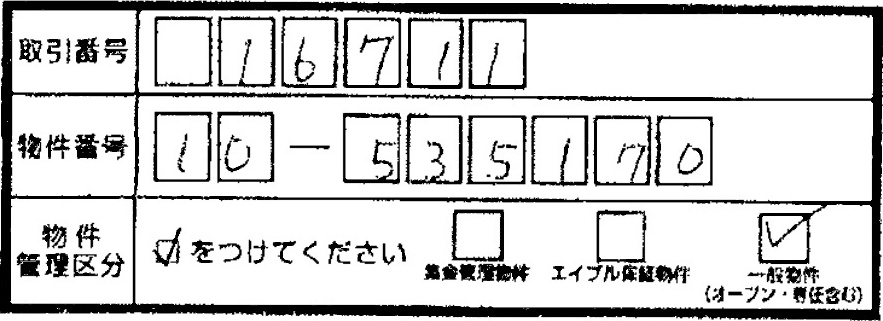 取引番号 16711
物件番号 10-535170
物件管理区分 ☑をつけてください 集金管理物件 エイブル保証物件 一般物件
(オープン・専任含む)